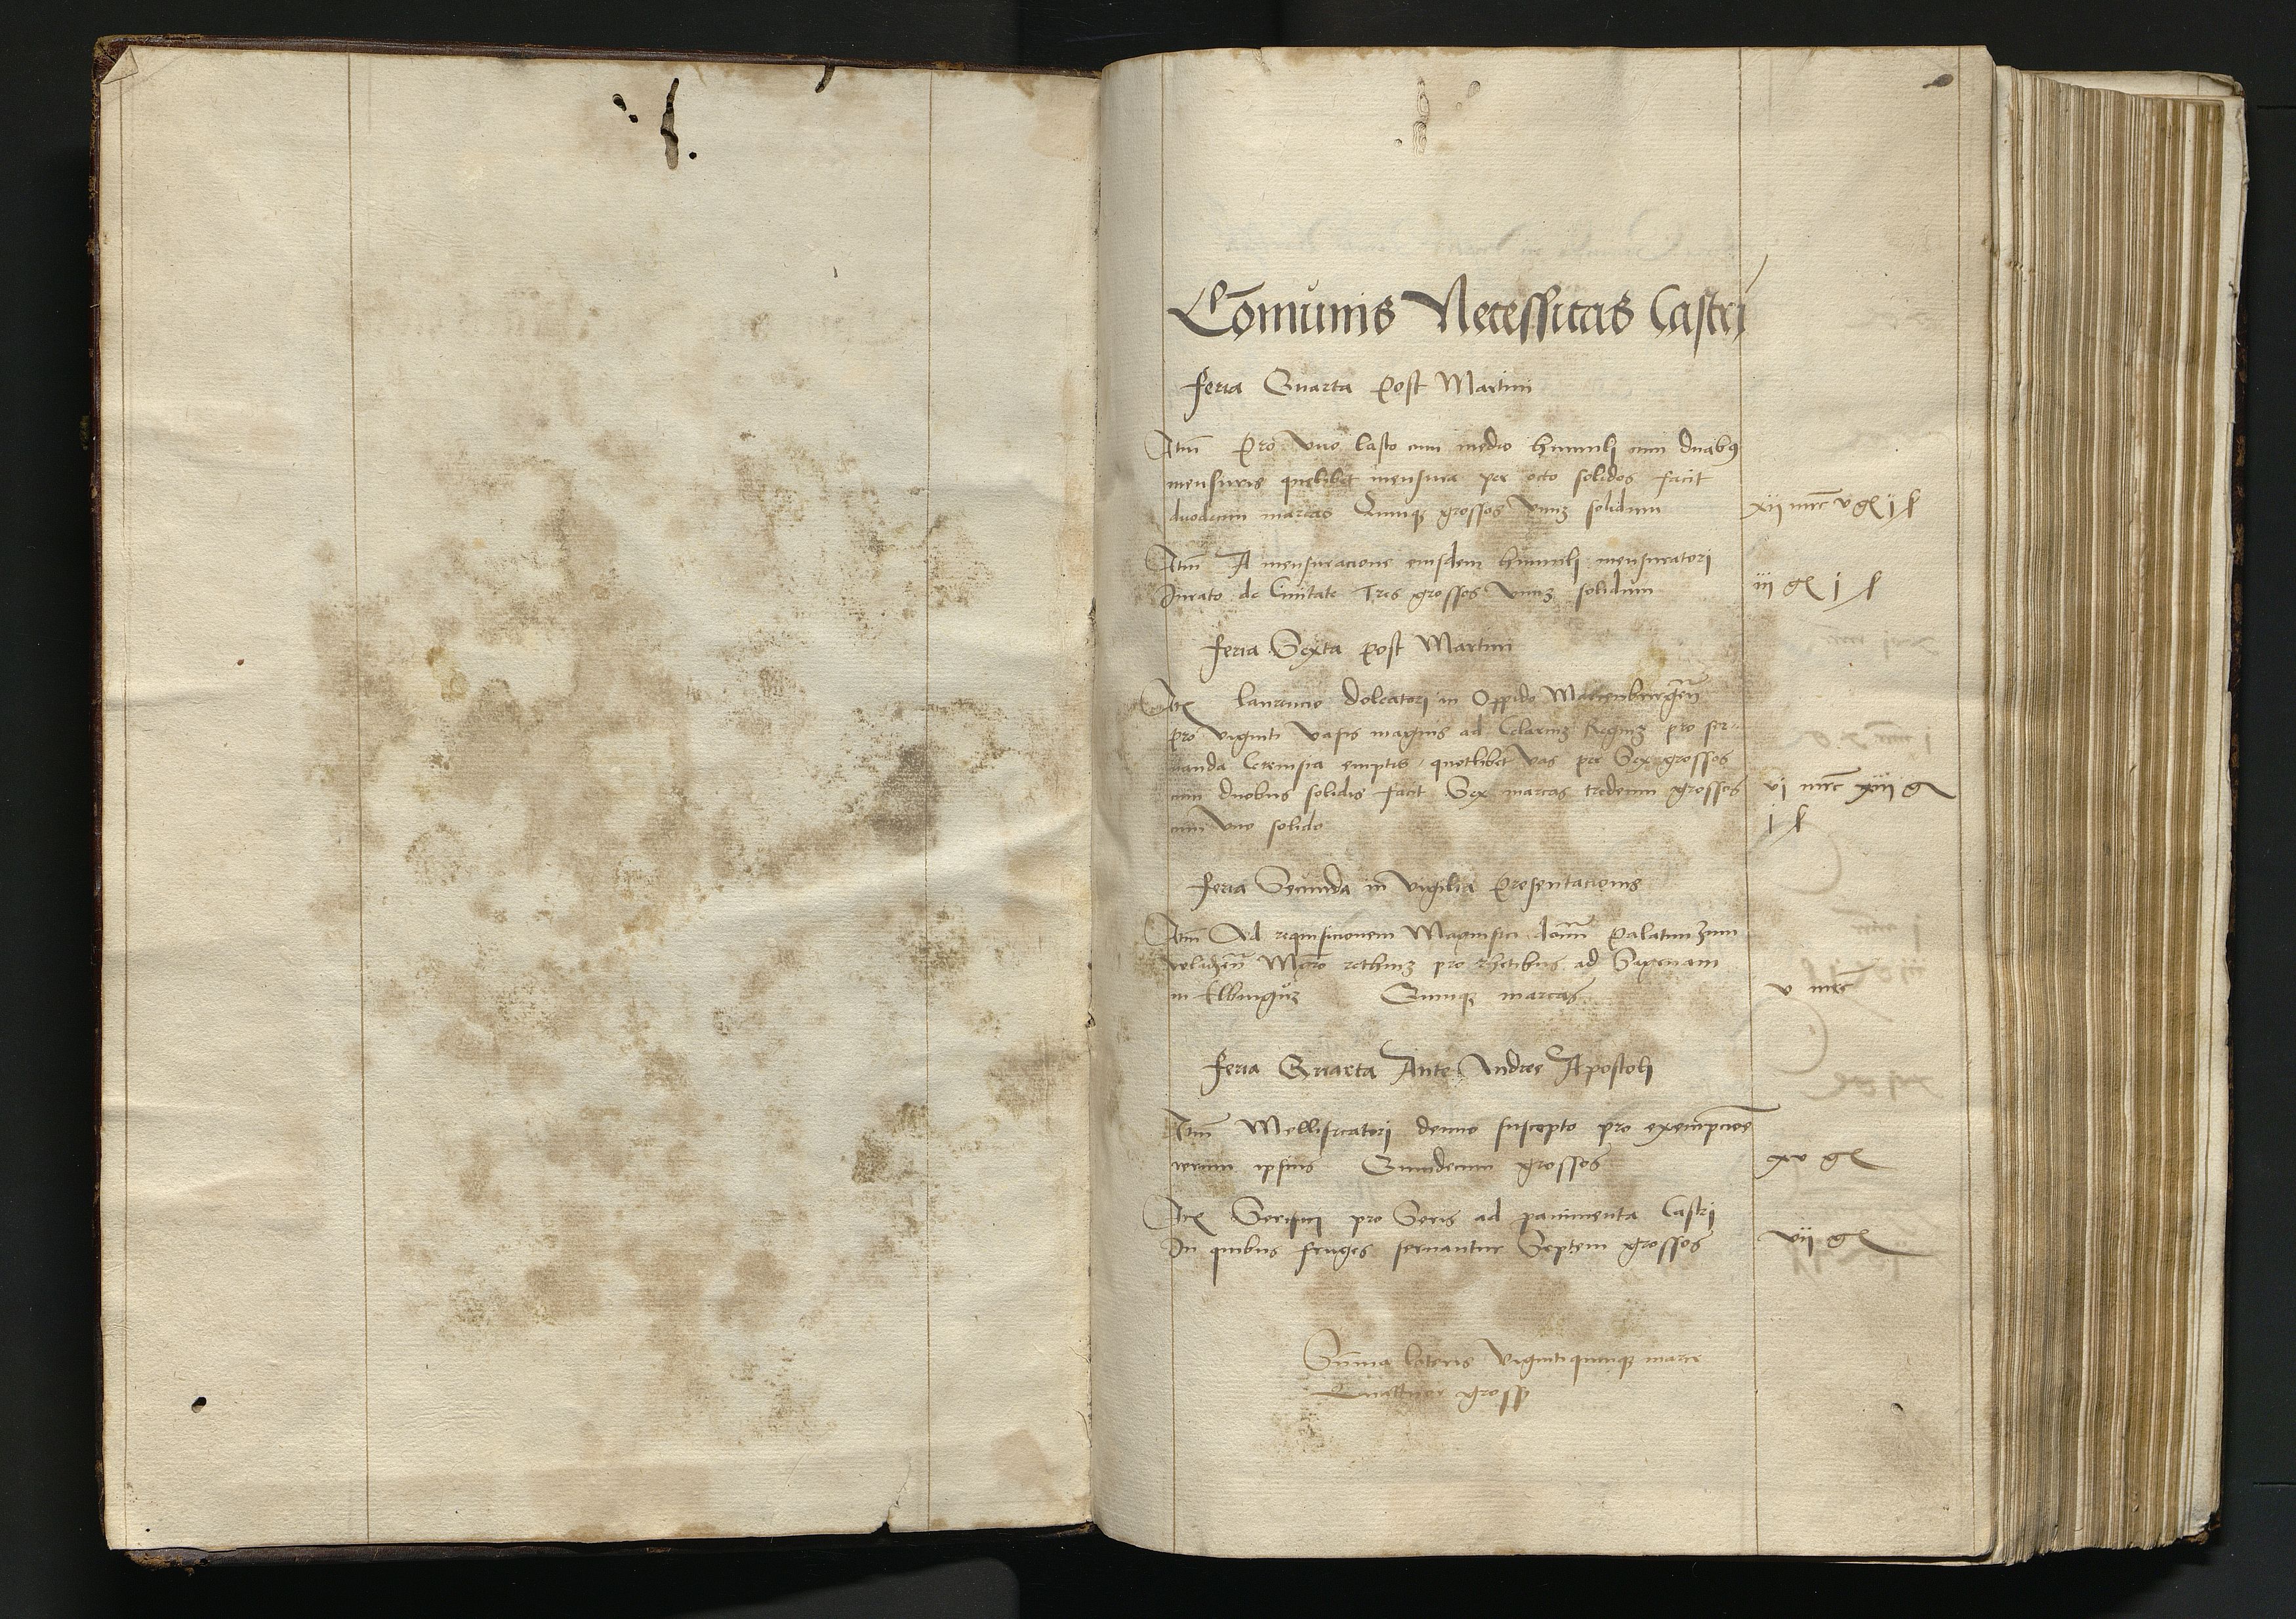 Com̄unis Necessitas Castri
feria Quarta post Martini
Itm̄ Pro vno lasto cum medio humuli cum duabus
mensuris quelibet mensura per octo solidos facit
duodecim marcas Quinque grossos vnum solidum
xii mrc v gr i s
Itm̄ A mensuracione eiusdem humuli mensuratori
Iurato de Ciuitate Tres grossos vnum solidum
iii gr i s
feria Sexta post Martini
Itm laurencio doleatori in Oppido Marienburgen̄
pro viginti vasis magnis ad Celarium Regium pro ser-
uanda Ceruisia emptis quotlibet vas per Sex grossos
cum duobus solidis facit Sex marcas tredecim grossos
cum vno solido
vi mrc xiii g
i s
feria Secunda in vigilia Presentacionis
Itm̄ Ad requisicionem Magnifici domini Palatini
pro rhetibus ad
in Elbingum Quinque marcas
v mrc
feria Quarta Ante Andree Apostoli
Itm̄ Mellificatori denuo suscepto pro exempcione
rerum ipsius Quindecim grossos
xv gr
Itm pro Seris ad pauimenta Castri
In quibus fruges seruantur Septem grossos
vii gr
Sūma lateris viginti quinque marce
Quattuor gross